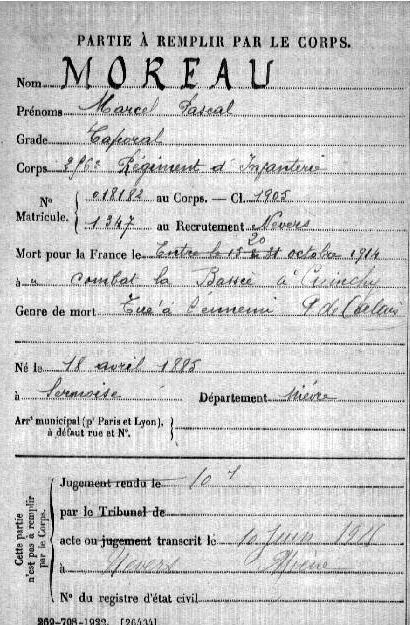 PARTIE À REMPLIR PAR LE CORPS.
Nom MOREAU
Prénoms Marcel Pascal
Grade Caporal
Corps 296e Régiment d'Infanterie
No Matricule. 018182 au Corps. — Cl. 1905
1347 au Recrutement Nevers
Mort pour la France le Entre le 20 octobre 1914
à combat la Bassée à Cuinchy
Genre de mort Tué à l'ennemi P. de Calais
Né le 18 avril 1885
à Sermoise Département Nièvre
Arrt municipal (pr Paris et Lyon), à défaut rue et No.
Cette partie n'est pas à remplir par le Corps.
Jugement rendu le
par le Tribunal de
acte ou jugement transcrit le 10 Juin
à Nevers Nièvre
No du registre d'état civil
269-708-1922. [26434]